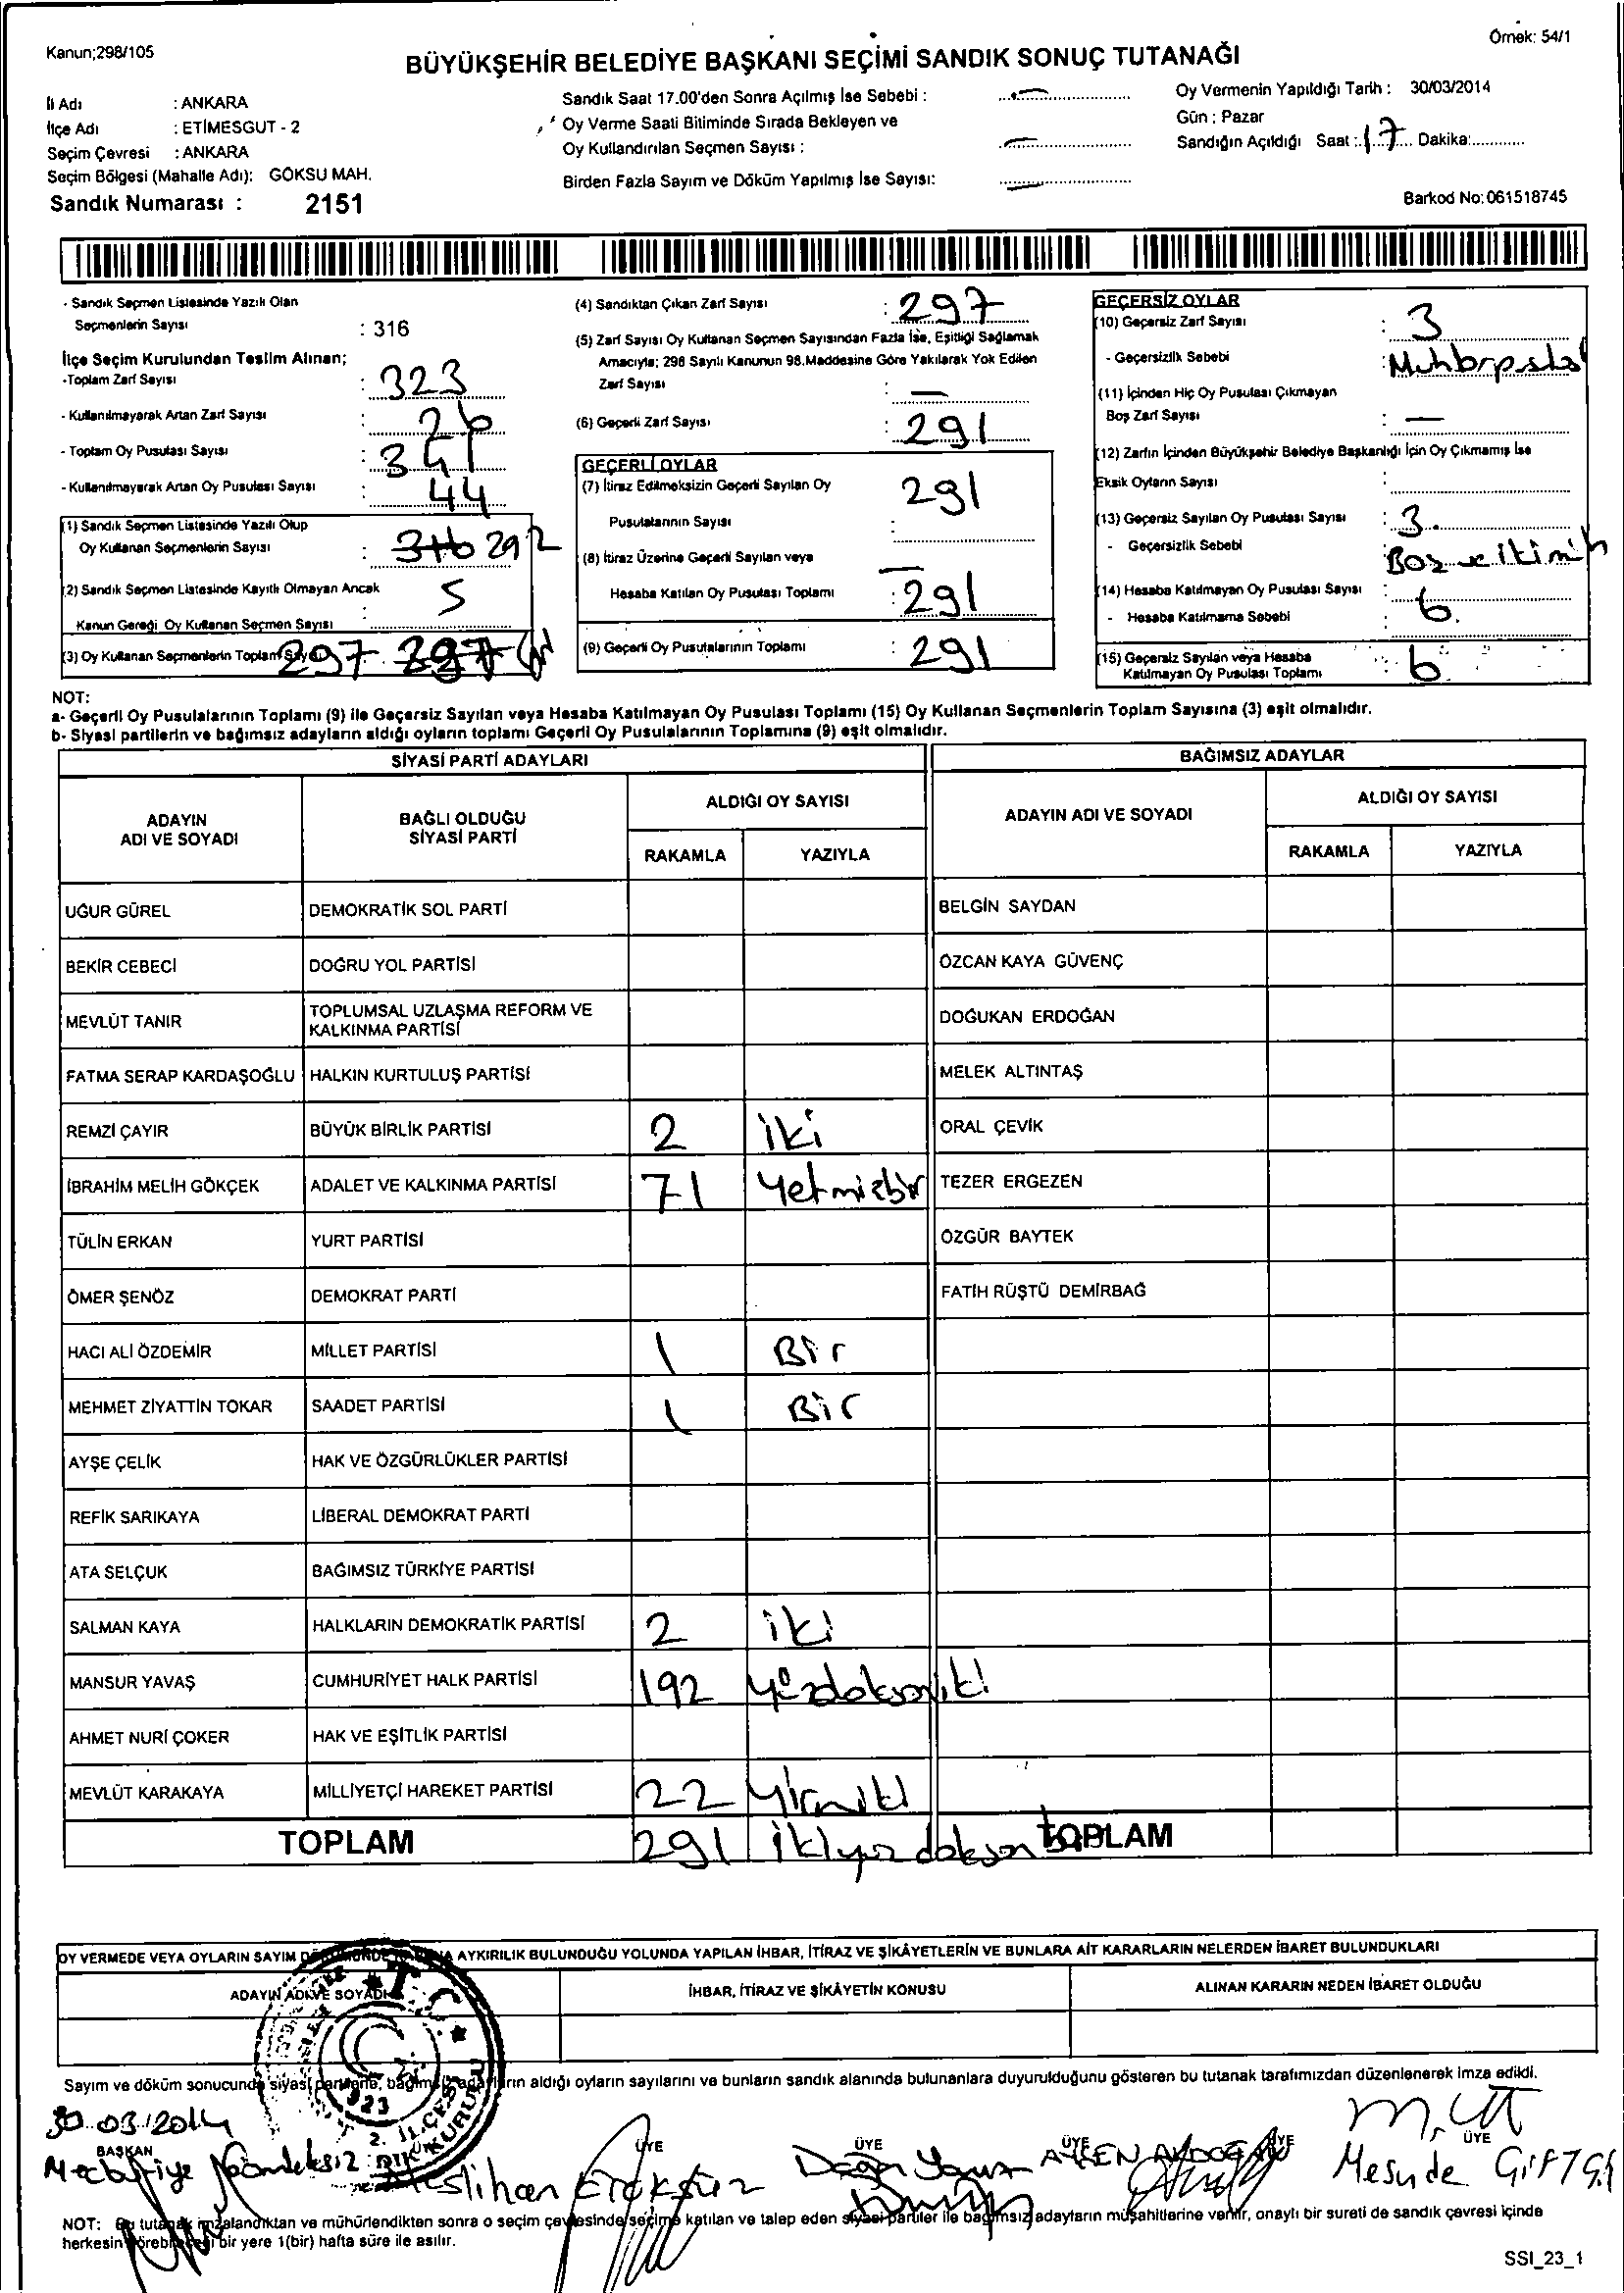 Kanun;298/105
Örnek: 54/1
BÜYÜKŞEHİR BELEDİYE BAŞKANI SEÇİMİ SANDIK SONUÇ TUTANAĞI
İli Adı : ANKARA
İlçe Adı : ETİMESGUT - 2
Seçim Çevresi : ANKARA
Seçim Bölgesi (Mahalle Adı): GÖKSU MAH.
Sandık Numarası : 2151
Sandık Saat 17.00'den Sonra Açılmış İse Sebebi :
Oy Verme Saati Bitiminde Sırada Bekleyen ve
Oy Kullandırılan Seçmen Sayısı :
Birden Fazla Sayım ve Döküm Yapılmış İse Sayısı:
Oy Vermenin Yapıldığı Tarih : 30/03/2014
Gün : Pazar
Sandığın Açıldığı Saat : 17 Dakika:
Barkod No: 061518745
- Sandık Seçmen Listesinde Yazılı Olan
Seçmenlerin Sayısı : 316
İlçe Seçim Kurulundan Teslim Alınan;
-Toplam Zarf Sayısı : 323
- Kullanılmayarak Artan Zarf Sayısı : 26
- Toplam Oy Pusulası Sayısı : 341
- Kullanılmayarak Artan Oy Pusulası Sayısı : 44
(1) Sandık Seçmen Listesinde Yazılı Olup
Oy Kullanan Seçmenlerin Sayısı : 316 292
(2) Sandık Seçmen Listesinde Kayıtlı Olmayan Ancak
Kanun Gereği Oy Kullanan Seçmen Sayısı : 5
(3) Oy Kullanan Seçmenlerin Toplam Sayısı 297 297
(4) Sandıktan Çıkan Zarf Sayısı : 297
(5) Zarf Sayısı Oy Kullanan Seçmen Sayısından Fazla İse, Eşitliği Sağlamak
Amacıyla; 298 Sayılı Kanunun 98.Maddesine Göre Yakılarak Yok Edilen
Zarf Sayısı : —
(6) Geçerli Zarf Sayısı : 291
GEÇERLİ OYLAR
(7) İtiraz Edilmeksizin Geçerli Sayılan Oy
Pusulalarının Sayısı : 291
(8) İtiraz Üzerine Geçerli Sayılan veya
Hesaba Katılan Oy Pusulası Toplamı : 291
(9) Geçerli Oy Pusulalarının Toplamı : 291
GEÇERSİZ OYLAR
(10) Geçersiz Zarf Sayısı : 3
- Geçersizlik Sebebi :
(11) İçinden Hiç Oy Pusulası Çıkmayan
Boş Zarf Sayısı : —
(12) Zarfın İçinden Büyükşehir Belediye Başkanlığı İçin Oy Çıkmamış İse
Eksik Oyların Sayısı :
(13) Geçersiz Sayılan Oy Pusulası Sayısı : 3.
- Geçersizlik Sebebi :
(14) Hesaba Katılmayan Oy Pusulası Sayısı : 6.
- Hesaba Katılmama Sebebi :
(15) Geçersiz Sayılan veya Hesaba
Katılmayan Oy Pusulası Toplamı : 6
NOT:
a- Geçerli Oy Pusulalarının Toplamı (9) ile Geçersiz Sayılan veya Hesaba Katılmayan Oy Pusulası Toplamı (15) Oy Kullanan Seçmenlerin Toplam Sayısına (3) eşit olmalıdır.
b- Siyasi partilerin ve bağımsız adayların aldığı oyların toplamı Geçerli Oy Pusulalarının Toplamına (9) eşit olmalıdır.
SİYASİ PARTİ ADAYLARI
BAĞIMSIZ ADAYLAR
ADAYIN ADI VE SOYADI
BAĞLI OLDUĞU SİYASİ PARTİ
ALDIĞI OY SAYISI
RAKAMLA YAZIYLA
ADAYIN ADI VE SOYADI
ALDIĞI OY SAYISI
RAKAMLA YAZIYLA
UĞUR GÜREL DEMOKRATİK SOL PARTİ BELGİN SAYDAN
BEKİR CEBECİ DOĞRU YOL PARTİSİ ÖZCAN KAYA GÜVENÇ
MEVLÜT TANIR TOPLUMSAL UZLAŞMA REFORM VE KALKINMA PARTİSİ DOĞUKAN ERDOĞAN
FATMA SERAP KARDAŞOĞLU HALKIN KURTULUŞ PARTİSİ MELEK ALTINTAŞ
REMZİ ÇAYIR BÜYÜK BİRLİK PARTİSİ 2 iki ORAL ÇEVİK
İBRAHİM MELİH GÖKÇEK ADALET VE KALKINMA PARTİSİ 71 Yetmişbir TEZER ERGEZEN
TÜLİN ERKAN YURT PARTİSİ ÖZGÜR BAYTEK
ÖMER ŞENÖZ DEMOKRAT PARTİ FATİH RÜŞTÜ DEMİRBAĞ
HACI ALİ ÖZDEMİR MİLLET PARTİSİ 1 Bir
MEHMET ZİYATTİN TOKAR SAADET PARTİSİ 1 Bir
AYŞE ÇELİK HAK VE ÖZGÜRLÜKLER PARTİSİ
REFİK SARIKAYA LİBERAL DEMOKRAT PARTİ
ATA SELÇUK BAĞIMSIZ TÜRKİYE PARTİSİ
SALMAN KAYA HALKLARIN DEMOKRATİK PARTİSİ 2 iki
MANSUR YAVAŞ CUMHURİYET HALK PARTİSİ 192 yüzdoksaniki
AHMET NURİ ÇOKER HAK VE EŞİTLİK PARTİSİ
MEVLÜT KARAKAYA MİLLİYETÇİ HAREKET PARTİSİ 22 Yirmiiki
TOPLAM 291 ikiyüz doksan bir TOPLAM
OY VERMEDE VEYA OYLARIN SAYIM DÖKÜMÜNDE AYKIRILIK BULUNDUĞU YOLUNDA YAPILAN İHBAR, İTİRAZ VE ŞİKÂYETLERİN VE BUNLARA AİT KARARLARIN NELERDEN İBARET BULUNDUKLARI
ADAYIN ADI VE SOYADI
İHBAR, İTİRAZ VE ŞİKÂYETİN KONUSU
ALINAN KARARIN NEDEN İBARET OLDUĞU
T.C.
2. İLÇE
Sayım ve döküm sonucunda siyasi partilerin, bağımsız adayların aldığı oyların sayılarını ve bunların sandık alanında bulunanlara duyurulduğunu gösteren bu tutanak tarafımızdan düzenlenerek imza edildi.
30.03.2014
BAŞKAN ÜYE ÜYE ÜYE ÜYE
Aslıhan Doğan Yavuz AYŞEN AKDOĞAN Mesude
NOT: Bu tutanak imzalandıktan ve mühürlendikten sonra o seçim çevresinde seçime katılan ve talep eden siyasi partiler ile bağımsız adayların müşahitlerine verilir, onaylı bir sureti de sandık çevresi içinde
herkesin görebileceği bir yere 1(bir) hafta süre ile asılır.
SSI_23_1